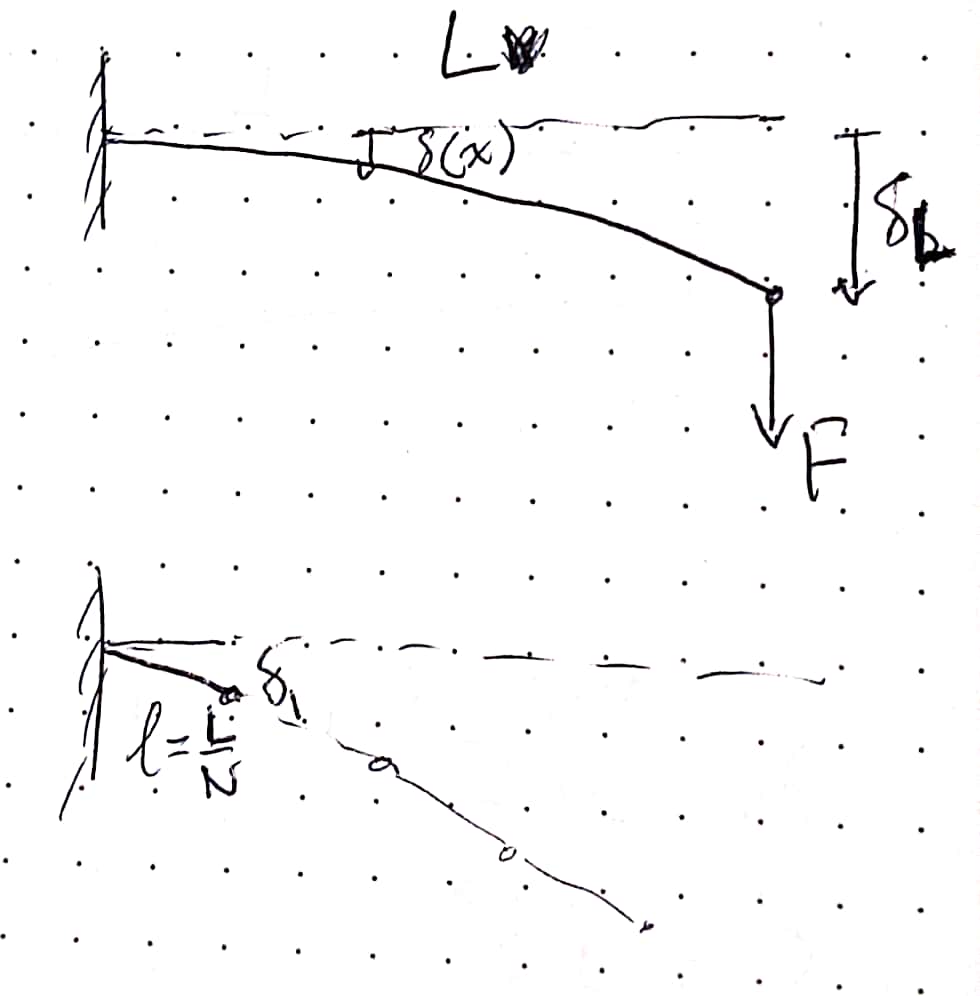 L
δ(x)
δ
F
δ₁
l = L/N